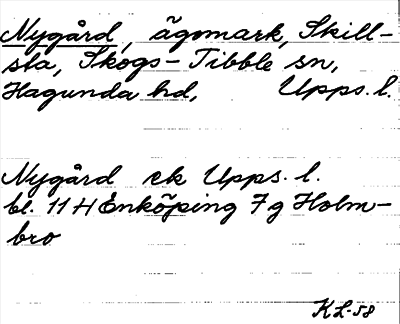 Nygård, ägomark, Skill-
sta, Skogs-Tibble sn,
Hagunda hd, Upps. l.
Nygård ek Upps. l.
bl. 11 H Enköping 7 g Holm-
bro
KL-58